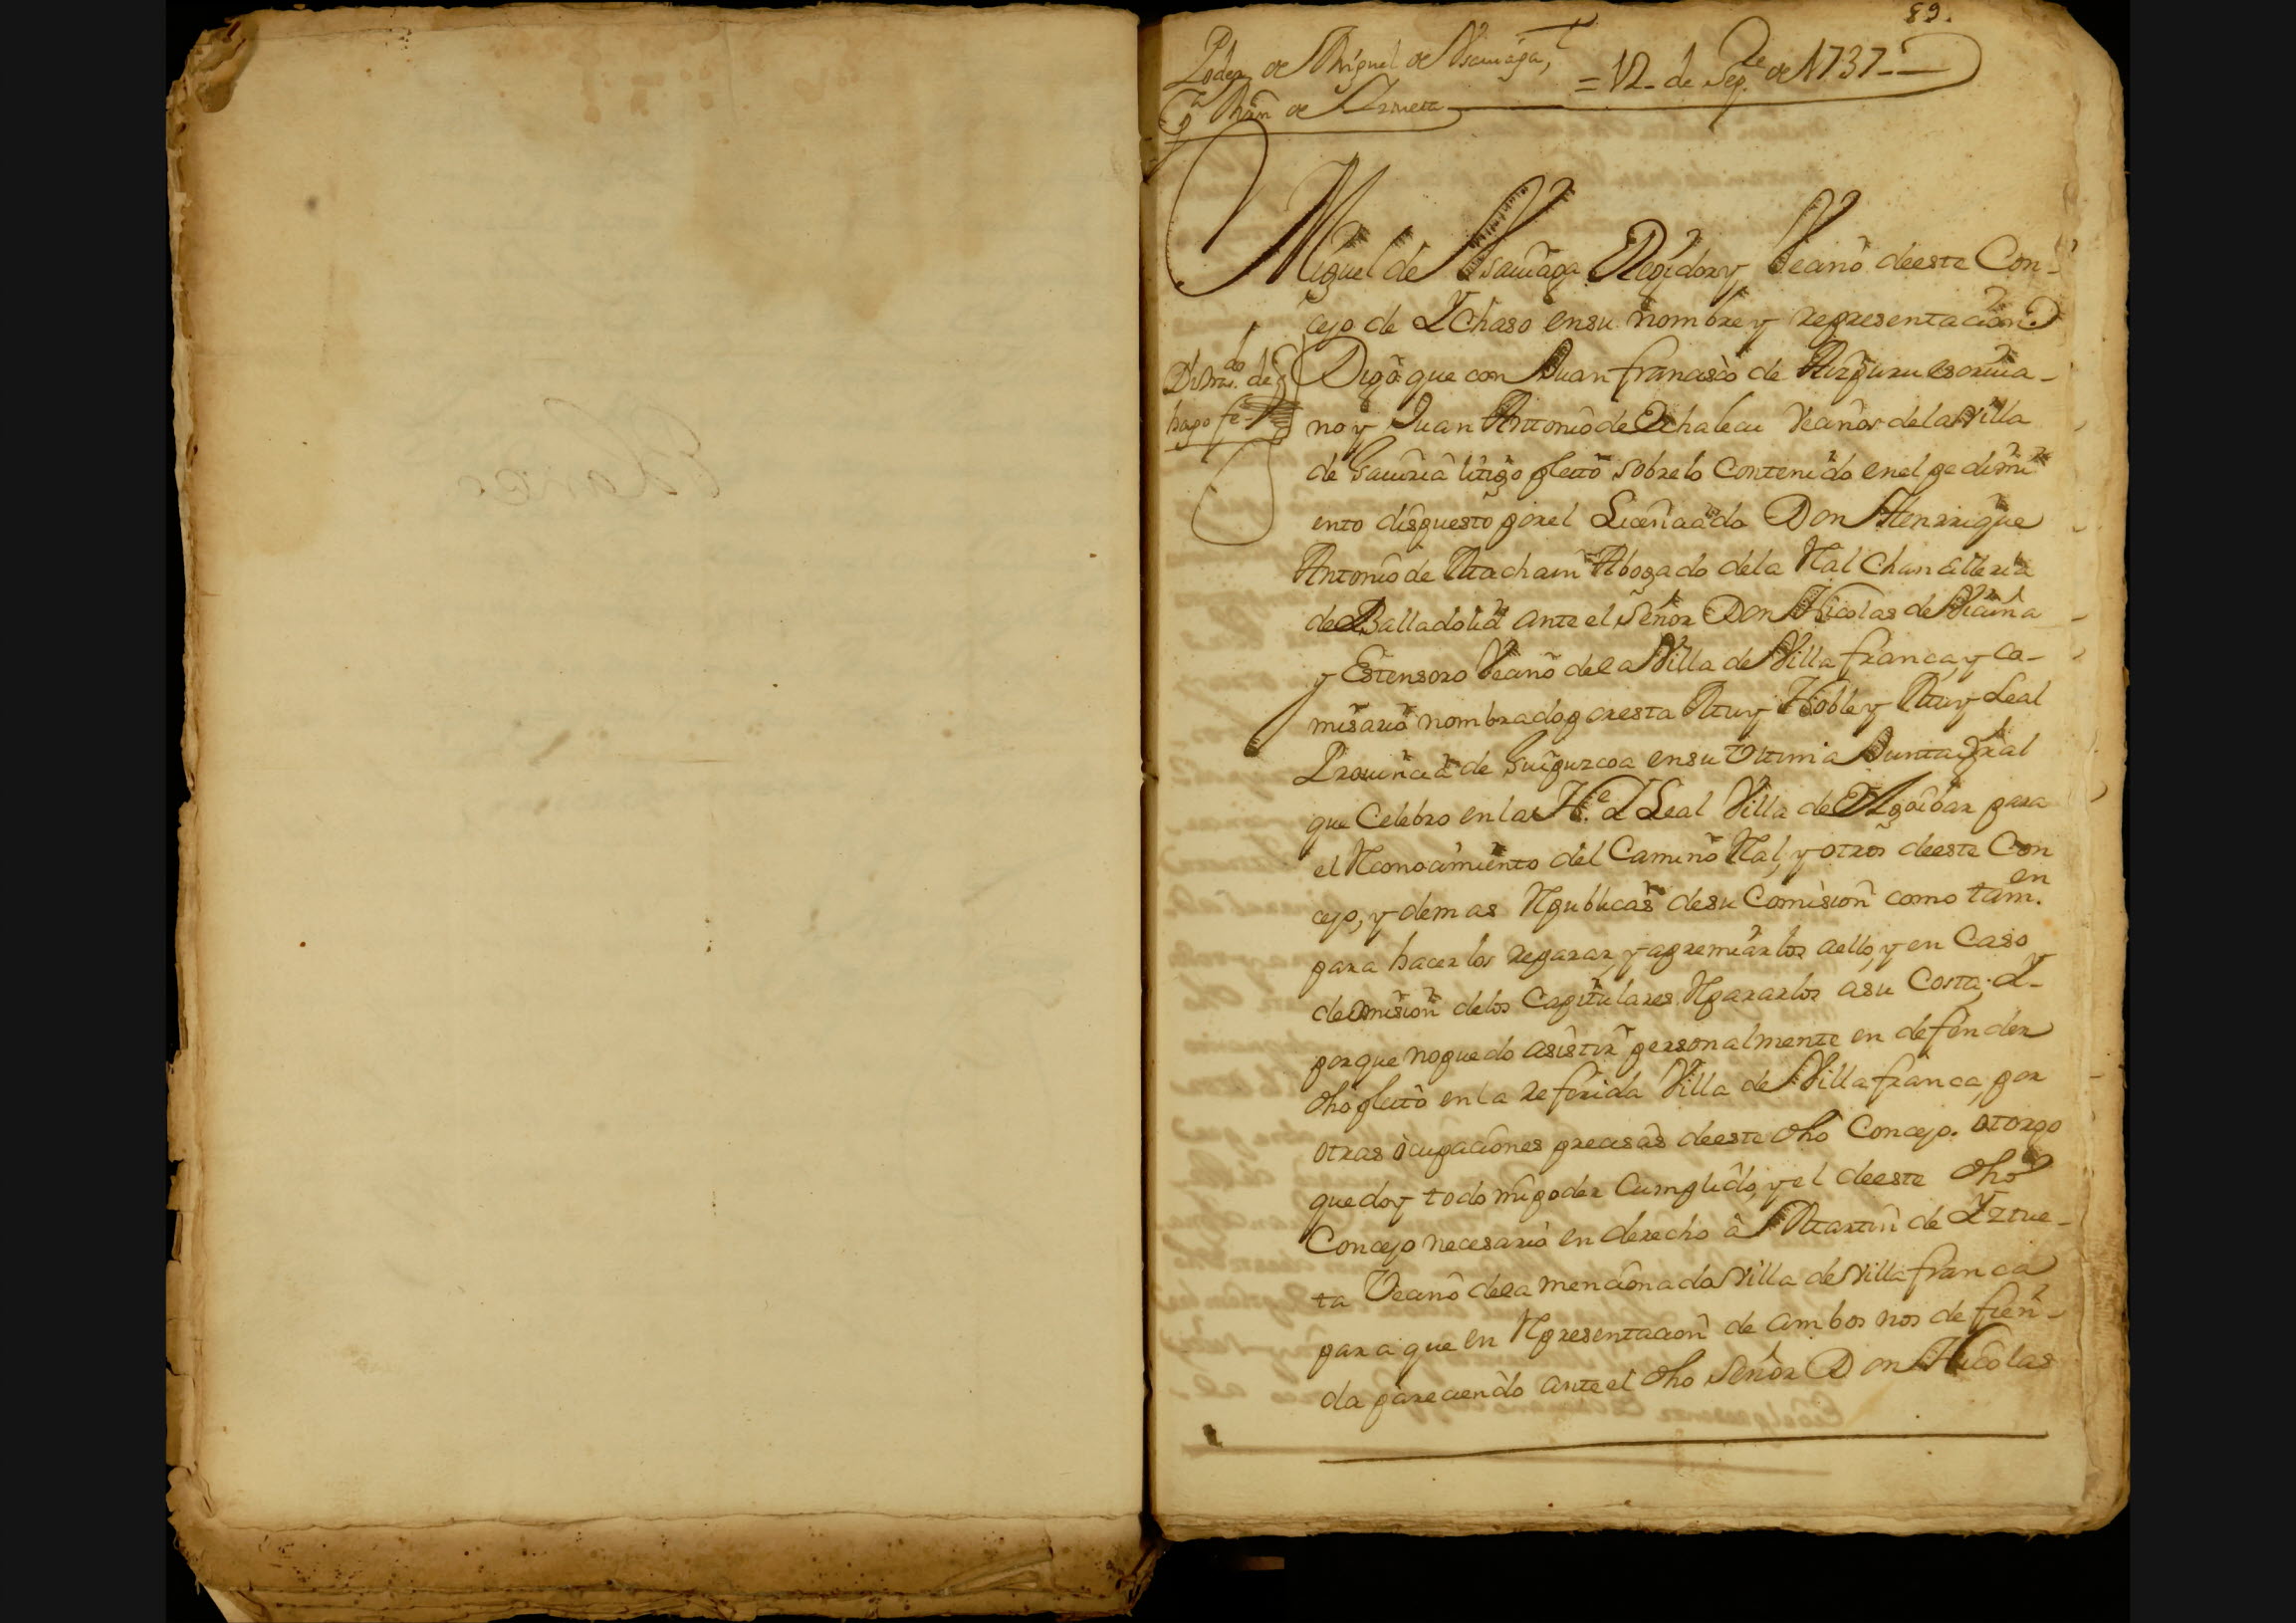 89.
Poder de Miguel de Usauiaga,
= 12 de Sepe. de 1737
Pa. Mrn de Izmeta
Miguel de Usauiaga Regidor y Vecino de este Con-
cejo de Ychaso en su nombre y representacion
Disrado. de
hago fe
Digo que con Juan francisco de Aizpuru escriua-
no y Juan Antonio de Echalecu Vecinos de la Villa
de Gauiria litigo pleito sobre lo Contenido en el pedimi
ento dispuesto por el Licenciado Don Henrrique
Antonio de Machain Abogado de la Ral Chancilleria
de Balladolid ante el Señor Don Nicolas de Vicuña
y Estensoro Vecino de la Villa de Villafranca, y co-
misario nombrado por esta Muy Noble y Muy Leal
Prouincia de Guipuzcoa en su Vltima Junta Gral
que Celebro en la Ne. Y Leal Villa de Elgoibar para
el Rconocimiento del Camino Ral, y otros de este Con
cejo, y demas Rpublicas de su Comision como tamen.
para hacerlos reparar, y apremiarlos a ello, y en Caso
de omision de los Capitulares Rpararlos a su Costa. Y-
porque no puedo asistir personalmente en defender
dho pleito en la referida Villa de Villafranca, por
otras ocupaciones precisas de este dho Concejo. otorgo
que doy todo mi poder Cumplido, y el de este dho
Concejo necesario en derecho â Martin de Yztue-
ta Vecino de la mencionada Villa de Villafranca
para que en Rpresentacion de ambos nos defien-
da pareciendo ante el dho Señor Don Nicolas